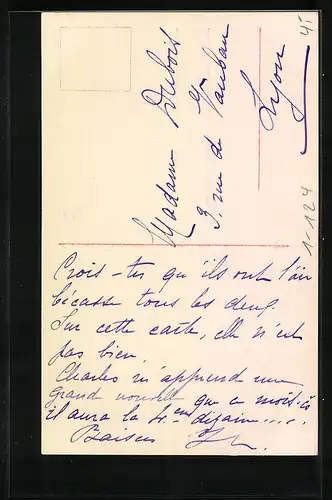 Madame Dubois
3, rue de Vauban
Lyon
45
1-124
Crois-tu qu'ils ont l'air
bécasse tous les deux.
Sur cette carte, elle n'est
pas bien.
Charles m'apprend une
grande nouvelle que ce mois-ci
il aura la
Baisers